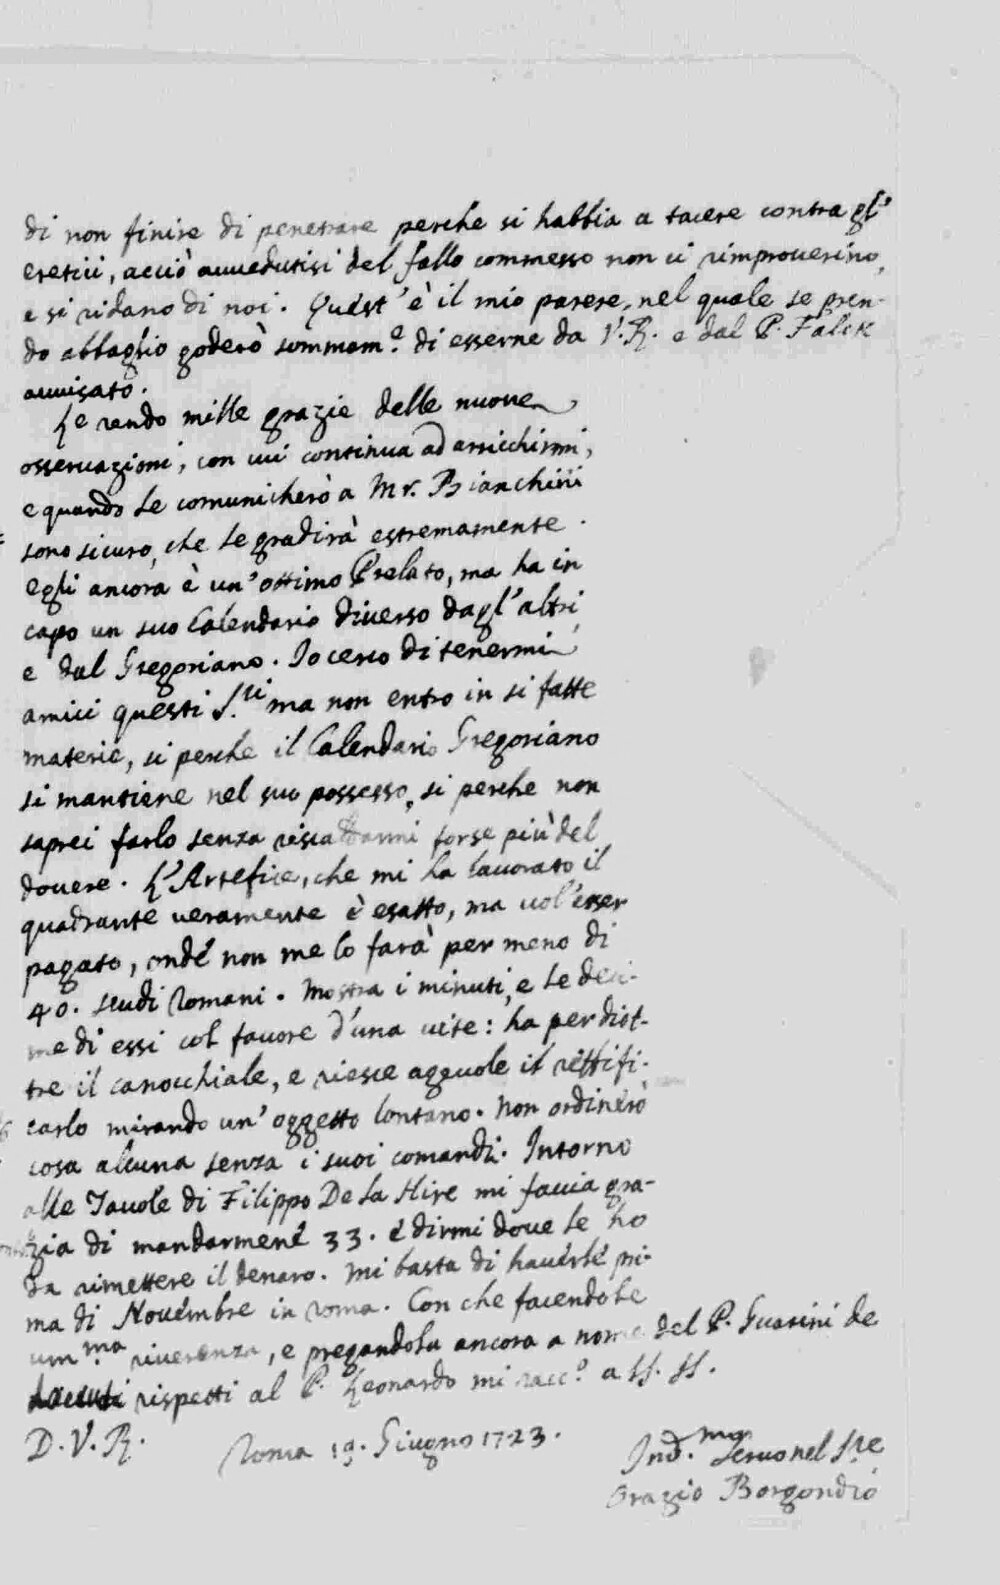 di non finire di penetrare perche si habbia a tacere contra gl'
eretici, acciò avvedutisi del fallo commesso non ci rimproverino,
e si ridano di noi. Quest'è il mio parere, nel quale se pren-
do abbaglio goderò sommam.e di esserne da V. R. e dal P. Falck
avvisato.
Le rendo mille grazie delle nuove
osservazioni, con cui continua ad arricchirmi,
e quando le comunicherò a Mr. Bianchini
sono sicuro, che le gradirà estremamente.
egli ancora è un'ottimo Prelato, ma ha in
capo un suo Calendario diverso dagl'altri
e dal Gregoriano. Io cerco di tenermi
amici questi S.ri ma non entro in si fatte
materie, si perche il Calendario Gregoriano
si mantiene nel suo possesso, si perche non
saprei farlo senza riscaldarmi forse più del
dovere. L'Artefice, che mi ha lavorato il
quadrante veramente è esatto, ma vol'esser
pagato, onde non me lo farà per meno di
40. scudi Romani. Mostra i minuti, e le deci-
me di essi col favore d'una vite: ha per diot-
tre il canocchiale, e riesce agevole il rettifi-
carlo mirando un'oggetto lontano. Non ordinerò
cosa alcuna senza i suoi comandi. Intorno
alle Tavole di Filippo De la Hire mi faccia gra-
zia di mandarmene 33. e dirmi dove le ho
da rimettere il denaro. Mi basta di haverle pri-
ma di Novembre in Roma. Con che facendole
um.ma riverenza, e pregandola ancora a nome del P. Guarini de
rispetti al P. Leonardo mi racc.o a SS. SS.
D. V. R.
Roma 19. Giugno 1723.
Ind.mo Servo nel S.re
Orazio Borgondio